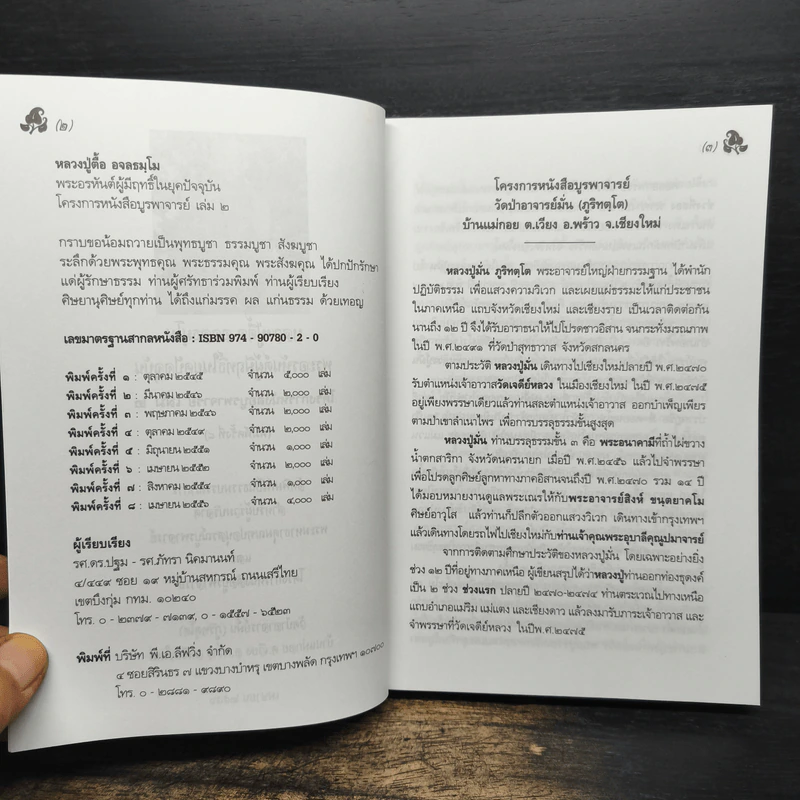 (๒)
หลวงปู่ตื้อ อจลธมฺโม
พระอรหันต์ผู้มีฤทธิ์ในยุคปัจจุบัน
โครงการหนังสือบูรพาจารย์ เล่ม ๒
กราบขอน้อมถวายเป็นพุทธบูชา ธรรมบูชา สังฆบูชา
ระลึกด้วยพระพุทธคุณ พระธรรมคุณ พระสังฆคุณ ได้ปกปักรักษา
แด่ผู้รักษาธรรม ท่านผู้ศรัทธาร่วมพิมพ์ ท่านผู้เรียบเรียง
ศิษยานุศิษย์ทุกท่าน ได้ถึงแก่มรรค ผล แก่นธรรม ด้วยเทอญ
เลขมาตรฐานสากลหนังสือ : ISBN 974 - 90780 - 2 - 0
พิมพ์ครั้งที่ ๑ : ตุลาคม ๒๕๔๕ จำนวน ๕,๐๐๐ เล่ม
พิมพ์ครั้งที่ ๒ : มีนาคม ๒๕๔๖ จำนวน ๒,๐๐๐ เล่ม
พิมพ์ครั้งที่ ๓ : พฤษภาคม ๒๕๔๖ จำนวน ๒,๐๐๐ เล่ม
พิมพ์ครั้งที่ ๔ : ตุลาคม ๒๕๔๙ จำนวน ๒,๐๐๐ เล่ม
พิมพ์ครั้งที่ ๕ : มิถุนายน ๒๕๕๑ จำนวน ๑,๐๐๐ เล่ม
พิมพ์ครั้งที่ ๖ : เมษายน ๒๕๕๒ จำนวน ๒,๐๐๐ เล่ม
พิมพ์ครั้งที่ ๗ : สิงหาคม ๒๕๕๔ จำนวน ๑,๐๐๐ เล่ม
พิมพ์ครั้งที่ ๘ : เมษายน ๒๕๕๖ จำนวน ๔,๐๐๐ เล่ม
ผู้เรียบเรียง
รศ.ดร.ปฐม - รศ.ภัทรา นิคมานนท์
๔/๔๔๙ ซอย ๑๙ หมู่บ้านสหกรณ์ ถนนเสรีไทย
เขตบึงกุ่ม กทม. ๑๐๒๔๐
โทร. ๐ - ๒๓๗๙ - ๗๑๓๙, ๐ - ๑๕๕๗ - ๖๕๒๓
พิมพ์ที่ บริษัท พี.เอ.ลีฟวิ่ง จำกัด
๔ ซอยสิรินธร ๗ แขวงบางบำหรุ เขตบางพลัด กรุงเทพฯ ๑๐๗๐๐
โทร. ๐ - ๒๘๘๑ - ๙๘๙๐
(๓)
โครงการหนังสือบูรพาจารย์
วัดป่าอาจารย์มั่น (ภูริทตฺโต)
บ้านแม่กอย ต.เวียง อ.พร้าว จ.เชียงใหม่
หลวงปู่มั่น ภูริทตฺโต พระอาจารย์ใหญ่ฝ่ายกรรมฐาน ได้พำนัก
ปฏิบัติธรรม เพื่อแสวงความวิเวก และเผยแผ่ธรรมะให้แก่ประชาชน
ในภาคเหนือ แถบจังหวัดเชียงใหม่ และเชียงราย เป็นเวลาติดต่อกัน
นานถึง ๑๒ ปี จึงได้รับอาราธนาให้ไปโปรดชาวอีสาน จนกระทั่งมรณภาพ
ในปี พ.ศ.๒๔๙๑ ที่วัดป่าสุทธาวาส จังหวัดสกลนคร
ตามประวัติ หลวงปู่มั่น เดินทางไปเชียงใหม่ปลายปี พ.ศ.๒๔๗๐
รับตำแหน่งเจ้าอาวาสวัดเจดีย์หลวง ในเมืองเชียงใหม่ ในปี พ.ศ.๒๔๗๕
อยู่เพียงพรรษาเดียวแล้วท่านสละตำแหน่งเจ้าอาวาส ออกบำเพ็ญเพียร
ตามป่าเขาลำเนาไพร เพื่อการบรรลุธรรมขั้นสูงสุด
หลวงปู่มั่น ท่านบรรลุธรรมขั้น ๓ คือ พระอนาคามีที่ถ้ำไผ่ขวาง
น้ำตกสาริกา จังหวัดนครนายก เมื่อปี พ.ศ.๒๔๕๖ แล้วไปจำพรรษา
เพื่อโปรดลูกศิษย์ลูกหาทางภาคอีสานจนถึงปี พ.ศ.๒๔๗๐ รวม ๑๔ ปี
ได้มอบหมายงานดูแลพระเณรให้กับพระอาจารย์สิงห์ ขนฺตยาคโม
ศิษย์อาวุโส แล้วท่านก็ปลีกตัวออกแสวงวิเวก เดินทางเข้ากรุงเทพฯ
แล้วเดินทางโดยรถไฟไปเชียงใหม่กับท่านเจ้าคุณพระอุบาลีคุณูปมาจารย์
จากการติดตามศึกษาประวัติของหลวงปู่มั่น โดยเฉพาะอย่างยิ่ง
ช่วง ๑๒ ปีที่อยู่ทางภาคเหนือ ผู้เขียนสรุปได้ว่าหลวงปู่ท่านออกท่องธุดงค์
เป็น ๒ ช่วง ช่วงแรก ปลายปี ๒๔๗๐-๒๔๗๔ ท่านตระเวณไปทางเหนือ
แถบอำเภอแม่ริม แม่แตง และเชียงดาว แล้วลงมารับภาระเจ้าอาวาส และ
จำพรรษาที่วัดเจดีย์หลวง ในปีพ.ศ.๒๔๗๕